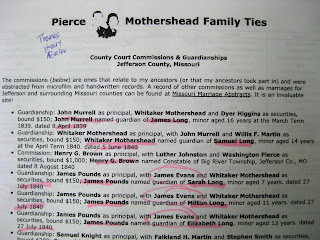 Pierce Mothershead Family Ties
Thomas
Henry
County Court Commissions & Guardianships
Jefferson County, Missouri
The commissions (below) are ones that relate to my ancestors (or that my ancestors took part in) and were
abstracted from microfilm and handwritten records. A record of other commissions as well as marriages for
Jefferson and surrounding Missouri counties can be found at Missouri Marriage Abstracts. It is an invaluable
site!
• Guardianship: John Murrell as principal, Whitaker Mothershead and Dyer Higgins as securities,
bound $150; John Murrell named guardian of James Long, minor aged 16 years at the March Term
1839, dated 8 April 1839
• Guardianship: Whitaker Mothershead as principal, with John Murrell and Willis F. Martin as
securities, bound $150; Whitaker Mothershead named guardian of Samuel Long, minor aged 14
years at the April Term, dated 5 June 1840
• Commission: Henry G. Brown as principal, with Luther Johnston and Washington Pierce as
securities, bound $1,000; Henry G. Brown named Constable of Big River Township, Jefferson Co., MO
dated 8 August 1840
• Guardianship: James Pounds as principal, with James Evans and Whitaker Mothershead as
securities, bound $150; James Pounds named guardian of Sarah Long, minor aged 7 years. dated 27
July 1840
• Guardianship: James Pounds as principal, with James Evans and Whitaker Mothershead as
securities, bound $150; James Pounds named guardian of Milton Long, minor aged 11 years. dated 27
July 1840
• Guardianship: James Pounds as principal, with James Evans and Whitaker Mothershead as
securities, bound $150; James Pounds named guardian of Elizabeth Long, minor aged 13 years. dated
27 July 1840
• Guardianship: Samuel Knight as principal, with Falkland H. Martin and Stephen Smith as securities,